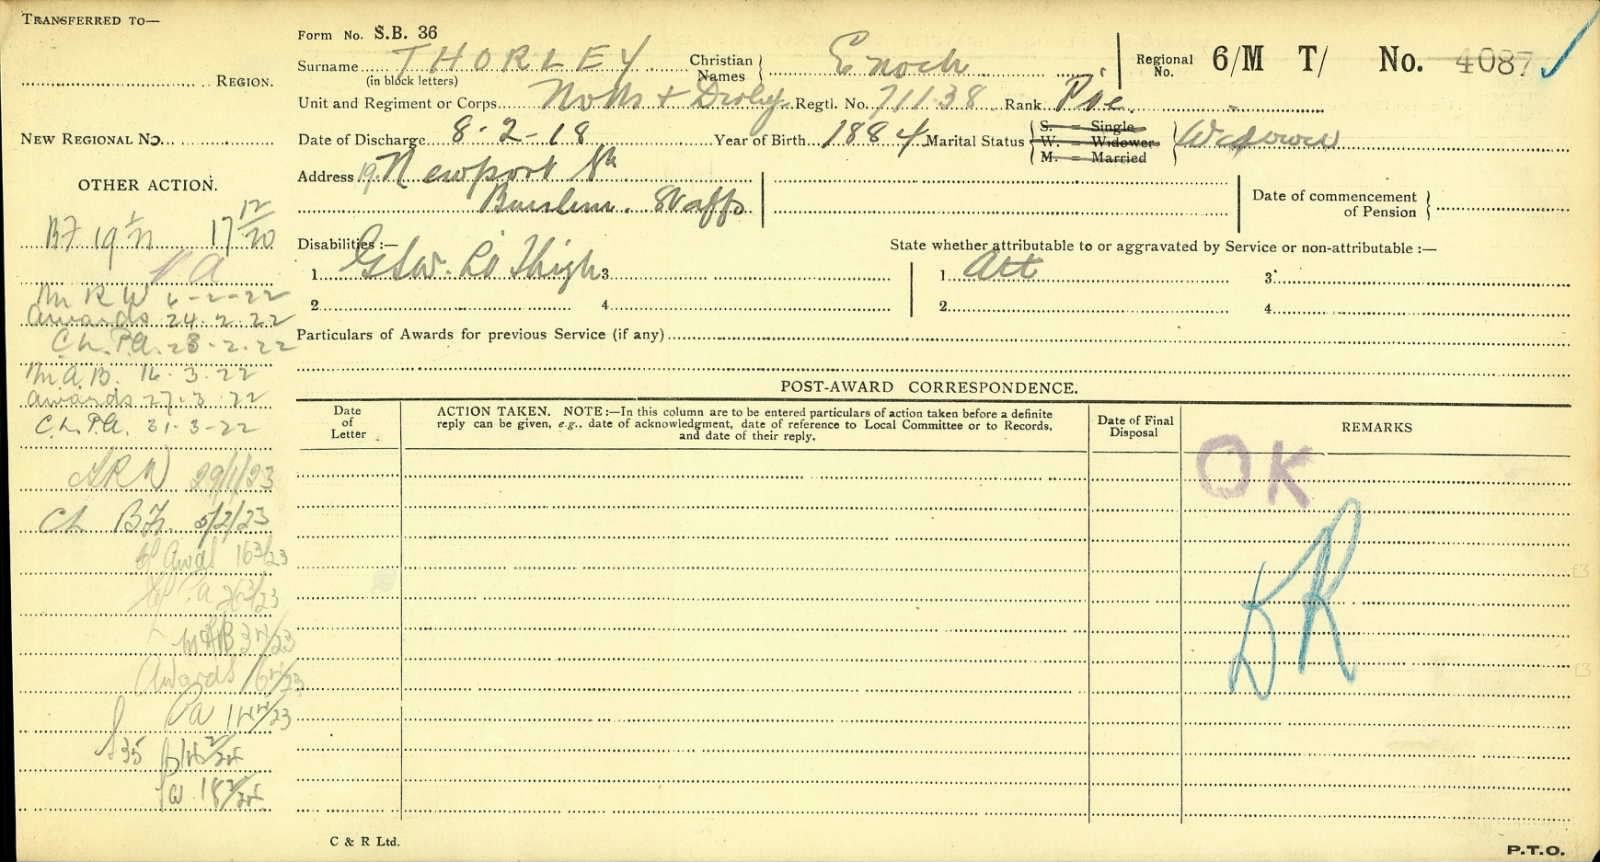 TRANSFERRED TO—
REGION.
NEW REGIONAL NO.
OTHER ACTION.
BF 19 1/21 17 12/20
PA
M R W 6-2-22
Awards 24.2.22
Ch. P.A. 28-2.22
M.A.B. 16.3.22
Awards 27.3.22
C.h. P.A. 31-3-22
29/1/23
Ch BF. 5/2/23
Awds 16 3/23
Pa 26 3/23
MAB 3 /23
Awards
Pa
S 35
Pa. 18
Form No. S.B. 36
Surname THORLEY Christian Names Enoch Regional No. 6/M T/ No. 4087
(in block letters)
Unit and Regiment or Corps Notts + Derby Regtl. No. 71138 Rank Pte
Date of Discharge 8-2-18 Year of Birth 1884 Marital Status S. = Single W. = Widower M. = Married Widower
Address 19 Newport St
Burslem. Staffs
Date of commencement of Pension
Disabilities:—
State whether attributable to or aggravated by Service or non-attributable :—
1 GSW. Lt Thigh 3 1 Att 3
2 4 2 4
Particulars of Awards for previous Service (if any)
POST-AWARD CORRESPONDENCE.
Date of Letter
ACTION TAKEN. NOTE :—In this column are to be entered particulars of action taken before a definite
reply can be given, e.g., date of acknowledgment, date of reference to Local Committee or to Records,
and date of their reply.
Date of Final Disposal
REMARKS
OK
DR
C & R Ltd.
P.T.O.